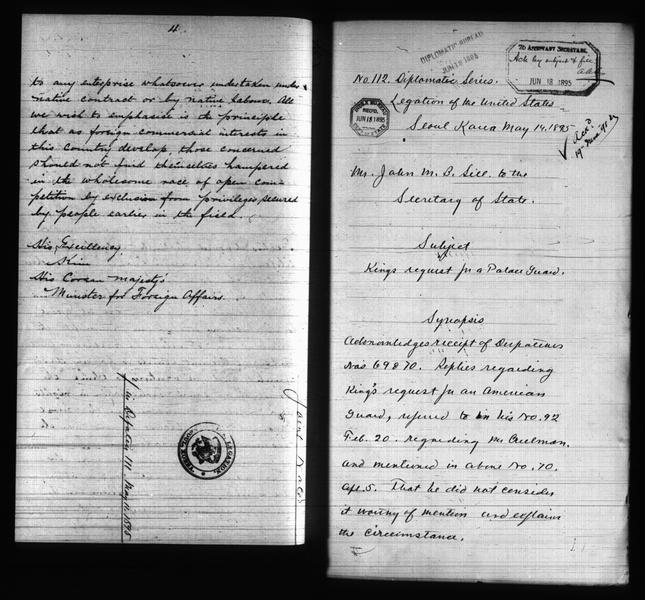 4
to any enterprise whatsoever undertaken under
native contract or by native labour. All
we wish to emphasize is the principle
that as foreign commercial interests in
this country develop, those concerned
should not find themselves hampered
in the wholesome race of open com-
petition by exclusion from privileges secured
by people earlier in the field.
His Excellency
Kim
His Corean Majesty's
Minister for Foreign Affairs.
in Despatch 111 May 11 1895
DIPLOMATIC BUREAU
JUN 18 1895
TO ASSISTANT SECRETARY.
Ack by subject & file
JUN 18 1895
No. 112. Diplomatic Series.
Legation of the United States
Seoul Korea May 14. 1895
RECEIVED
JUN 18 1895
Mr. John M. B. Sill to the
Secretary of State.
Subject
King's request for a Palace Guard.
Synopsis
Acknowledges receipt of Despatches
Nos 69 & 70. Replies regarding
King's request for an American
Guard, referred to in his No. 92
Feb. 20. regarding Mr.
and mentioned in above No. 70.
Apl. 5. That he did not consider
it worthy of mention and explains
the circumstance.